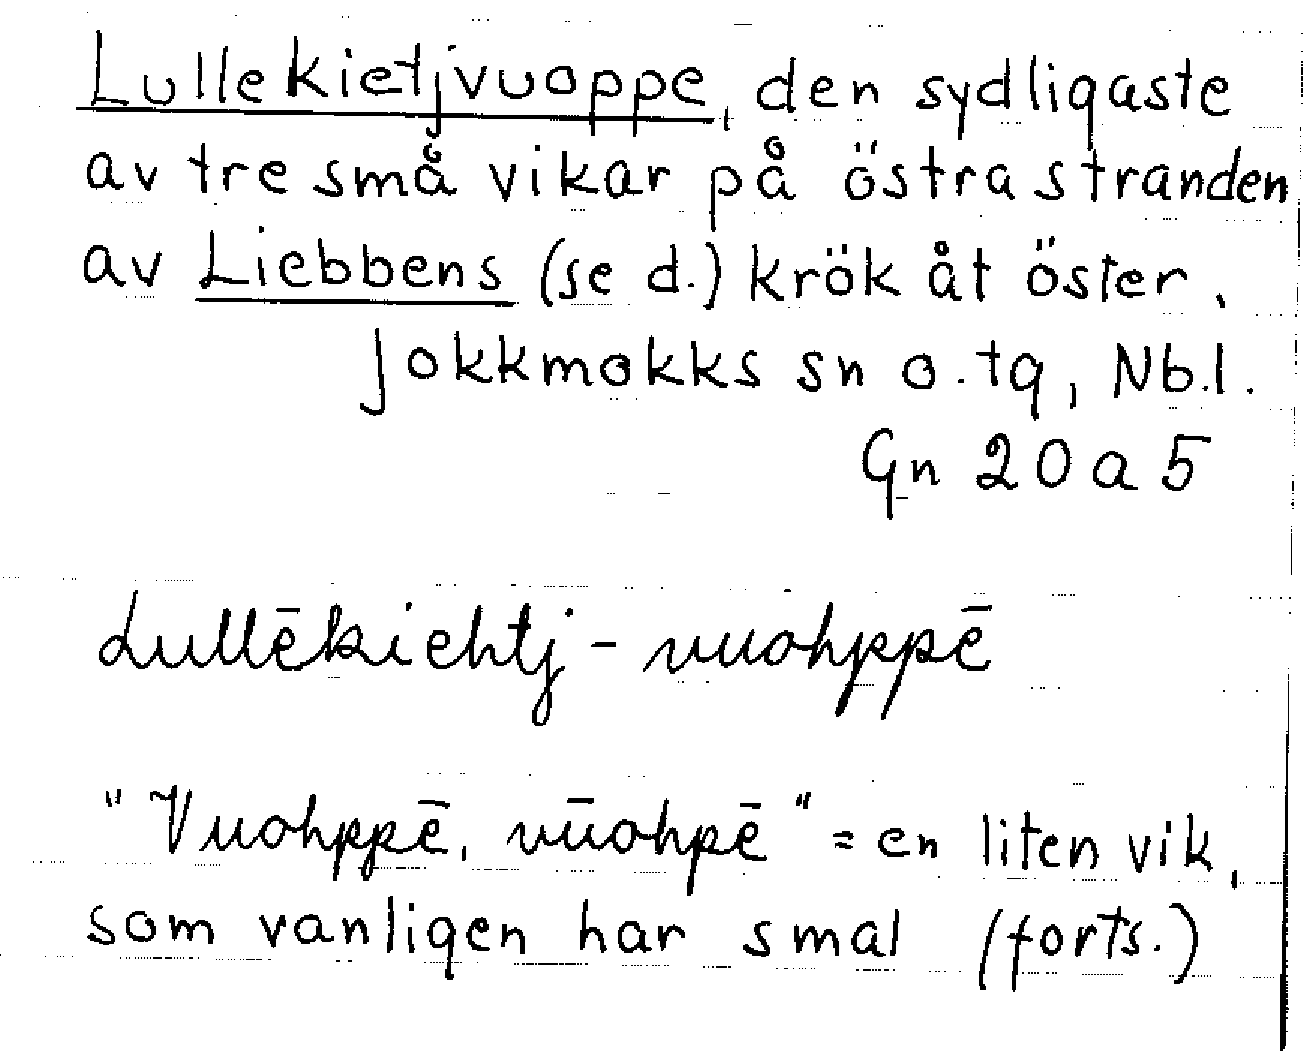 Lullekietjvuoppe, den sydligaste
av tre små vikar på östra stranden
av Liebbens (se d.) krök åt öster,
Jokkmokks sn o. tg, Nb.l.
Gn 20 a 5
Lullēkiehtj - vuohppē
"Vuohppē, vūohpē" = en liten vik,
som vanligen har smal (forts.)